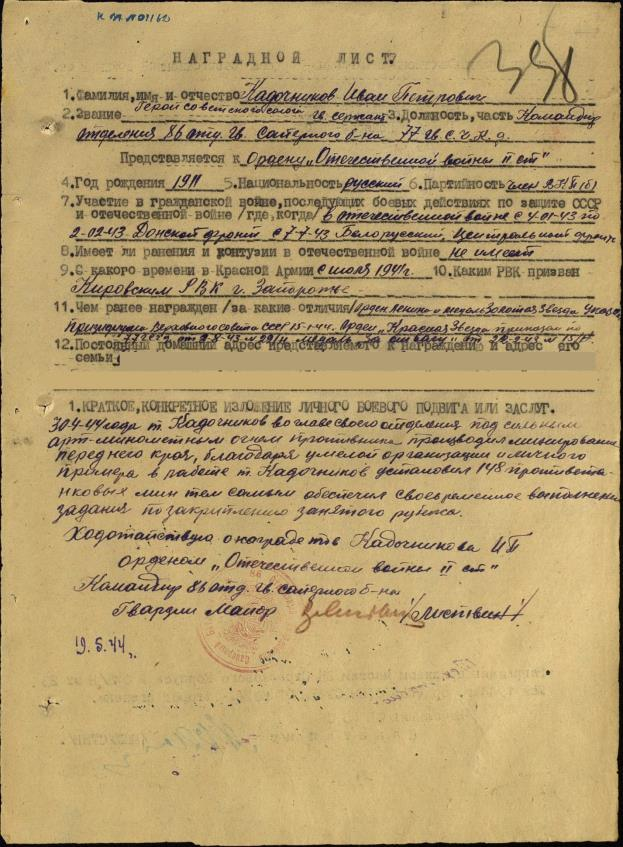 НАГРАДНОЙ ЛИСТ
398
1.Фамилия,имя и отчество Кадочников Иван Петрович
2.Звание Герой советского союза гв. сержант 3.Должность, часть Командир
отделения 86 отд. гв. Саперного б-на 77 гв. С.Ч.К.Д.
Представляется к ордену „Отечественной войны II ст"
4.Год рождения 1911 5.Национальность русский 6.Партийность член ВКП(б)
7.Участие в гражданской войне,последующих боевых действиях по защите СССР
и отечественной войне /где,когда/ в отечественной войне с 4-01-43 по
2-02-43 Донской фронт с 7-7-43 Белорусский, Центральный
8.Имеет ли ранения и контузии в отечественной войне не имеет
9.С какого времени в Красной Армии с июля 1941г. 10.Каким РВК призван
Кировским РВК г. Запорожье
11.Чем ранее награжден /за какие отличия/ Орден Ленина и медаль Золотая Звезда Указ.
Президиума Верховного совета СССР 15-1-44. Орден „Красная Звезда приказом по
12.Постоянный домашний адрес представляемого к награждению и адрес его
семьи
1.КРАТКОЕ,КОНКРЕТНОЕ ИЗЛОЖЕНИЕ ЛИЧНОГО БОЕВОГО ПОДВИГА ИЛИ ЗАСЛУГ.
30.4.44 года т. Кадочников во главе своего отделения под сильным
арт-минометным огнем противника производил минирование
переднего края, благодаря умелой организации и личного
примера в работе т. Кадочников установил 148 противота-
нковых мин тем самым обеспечил своевременное выполнение
задания по закреплению занятого рубежа.
Ходотайствую о награде тов Кадочникова ИП
орденом „Отечественной войны II ст"
Командир 86 отд. гв. саперного б-на
Гвардии Майор /Листвин/
19.5.44г.